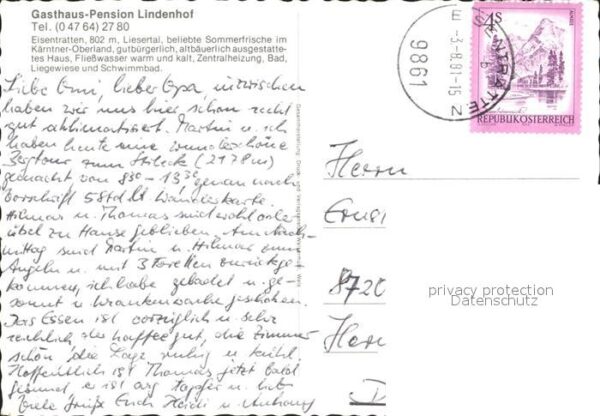 Gasthaus-Pension Lindenhof
Tel. (0 47 64) 27 80
Eisentratten, 802 m, Liesertal, beliebte Sommerfrische im
Kärntner-Oberland, gutbürgerlich, altbäuerlich ausgestatte-
tes Haus, Fließwasser warm und kalt, Zentralheizung, Bad,
Liegewiese und Schwimmbad.
Liebe Omi, lieber Opa, inzwischen
haben wir uns hier schon recht
gut akklimatisiert. Martin u. ich
haben heute eine wunderschöne
Bergtour zum Stileck (2178 m)
gemacht von 8³⁰ - 13³⁰, genau nach
Vorschrift 5 Std lt. Wanderkarte.
Hilmar u. Thomas sind wohl oder
übel zu Hause geblieben. Am Nach-
mittag sind Martin u. Hilmar zum
Angeln u. mit 3 Forellen zurückge-
kommen, ich habe gebadet u. ge-
sonnt u. Krankenwache geschoben.
Das Essen ist vorzüglich u. sehr
reichlich, der Kaffee gut, die Zimmer
schön, die Lage ruhig u. kühl.
Hoffentlich ist Thomas jetzt bald
gesund, er ist arg tapfer u. lieb.
Viele Grüße Euch Heidi u. Anhang
EISENTRATTEN
-3.-8.81-15
9861
4S
REPUBLIK ÖSTERREICH
Herrn
Ernst
8720
Herrn
D
privacy protection
Datenschutz